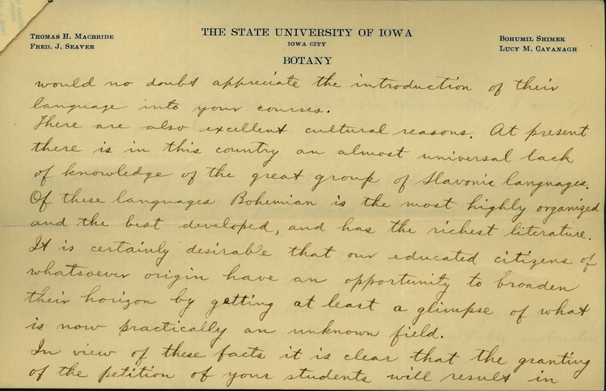 THOMAS H. MACBRIDE
FRED. J. SEAVER
THE STATE UNIVERSITY OF IOWA
IOWA CITY
BOTANY
BOHUMIL SHIMEK
LUCY M. CAVANAGH
would no doubt appreciate the introduction of their
language into your courses.
There are also excellent cultural reasons. At present
there is in this country an almost universal lack
of knowledge of the great group of Slavonic languages.
Of these languages Bohemian is the most highly organized
and the best developed, and has the richest literature.
It is certainly desirable that our educated citizens of
whatsoever origin have an opportunity to broaden
their horizon by getting at least a glimpse of what
is now practically an unknown field.
In view of these facts it is clear that the granting
of the petition of your students will result in